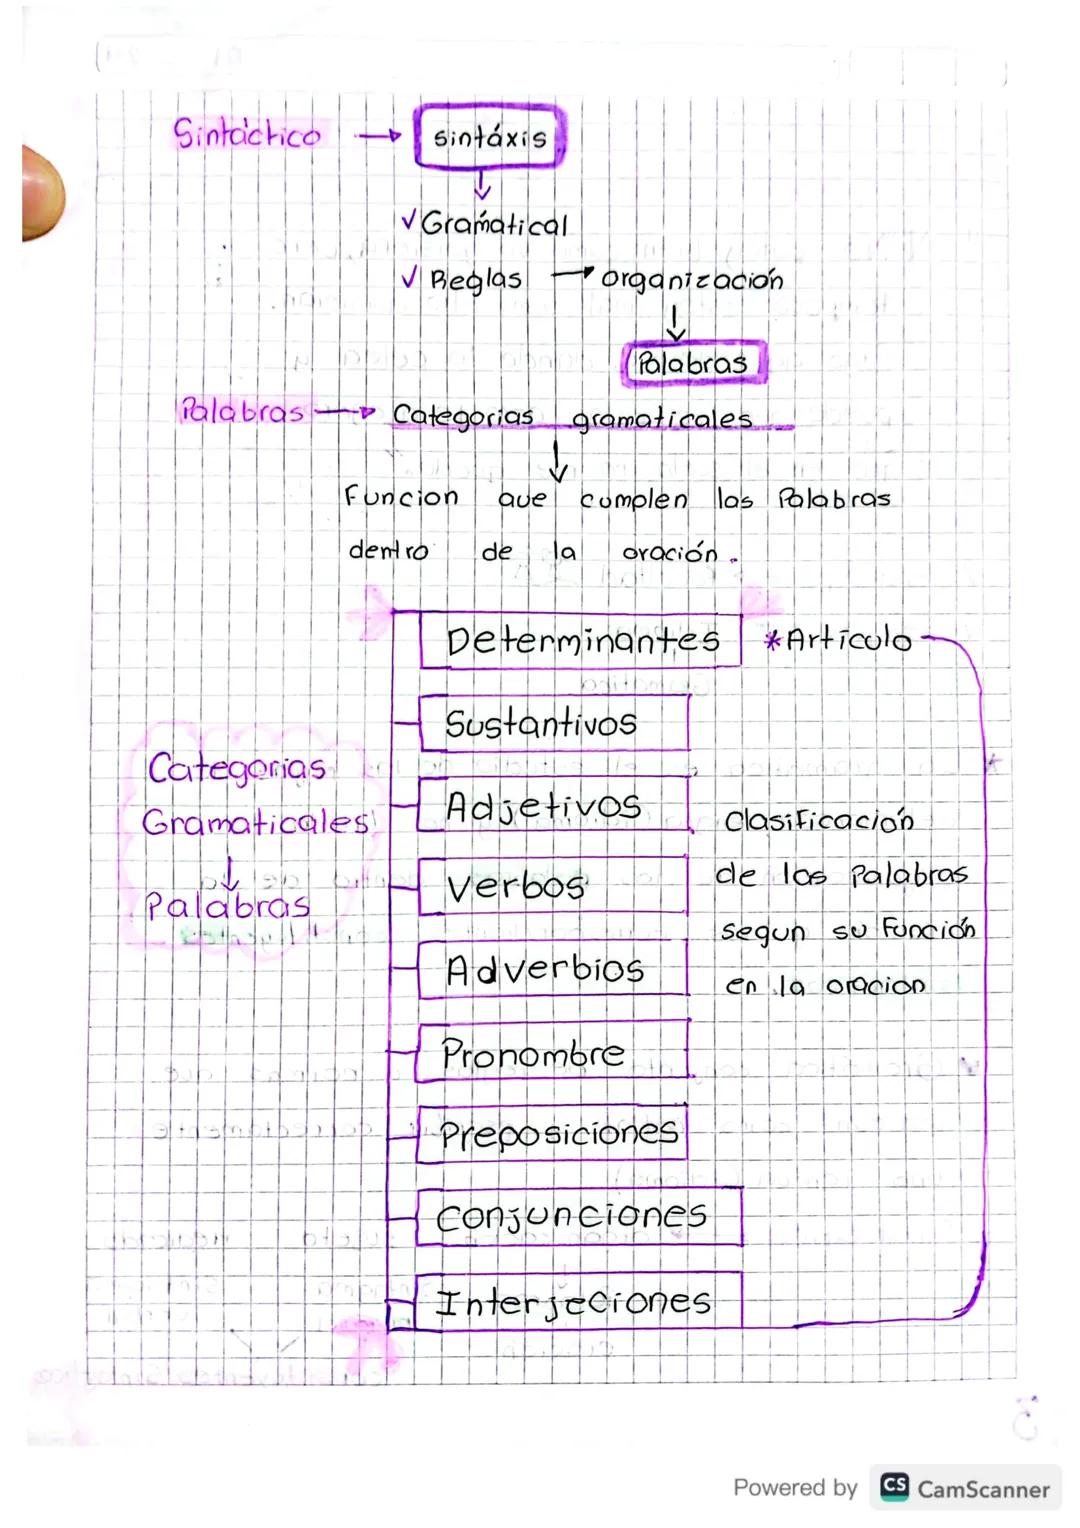 Sintáctico → sintáxis
↓
✓ Gramátical
✓ Reglas → organización
↓
Palabras
Palabras → Categorias gramaticales
↓
Funcion que cumplen las Palabras
dentro de la oración.
Determinantes *Artículo
Sustantivos
Categorias
Gramaticales
↓
Palabras
Adjetivos
Verbos
Adverbios
Pronombre
Preposiciones
Conjunciones
Interjeciones
Clasificación
de las Palabras
segun su Función
en la oracion
Powered by CS CamScanner